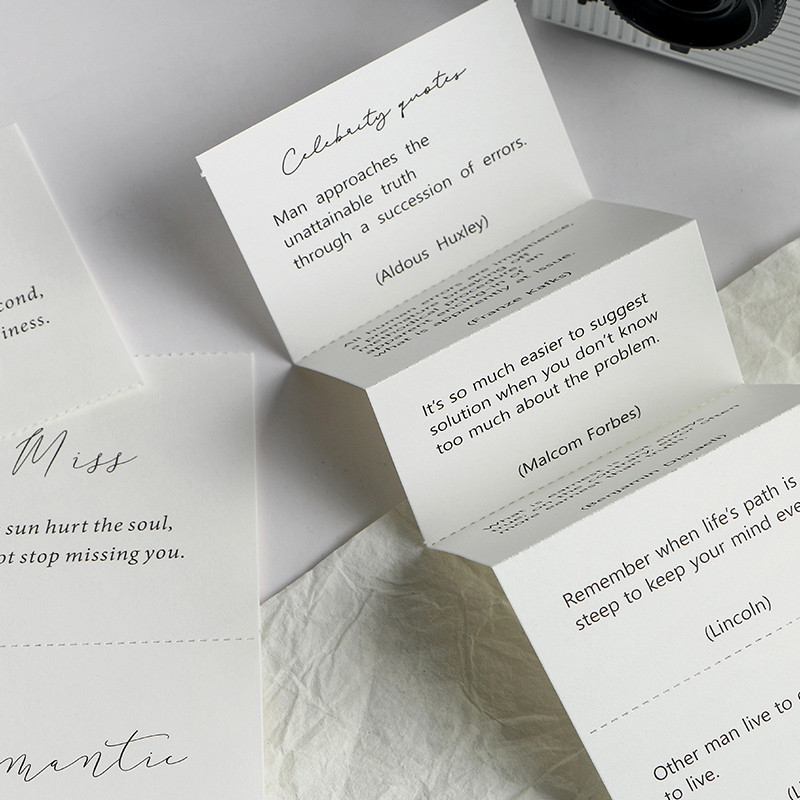 Celebrity quotes
Man approaches the
unattainable truth
through a succession of errors.
(Aldous Huxley)
all human errors are impatience,
what is apparently at issue.
(Franze Kafks)
It's so much easier to suggest
solution when you don't know
too much about the problem.
(Malcom Forbes)
(Benjamin Disraeli)
Remember when life's path is
steep to keep your mind eve
(Lincoln)
Other man live to
to live.
cond,
iness.
Miss
sun hurt the soul,
ot stop missing you.
mantic